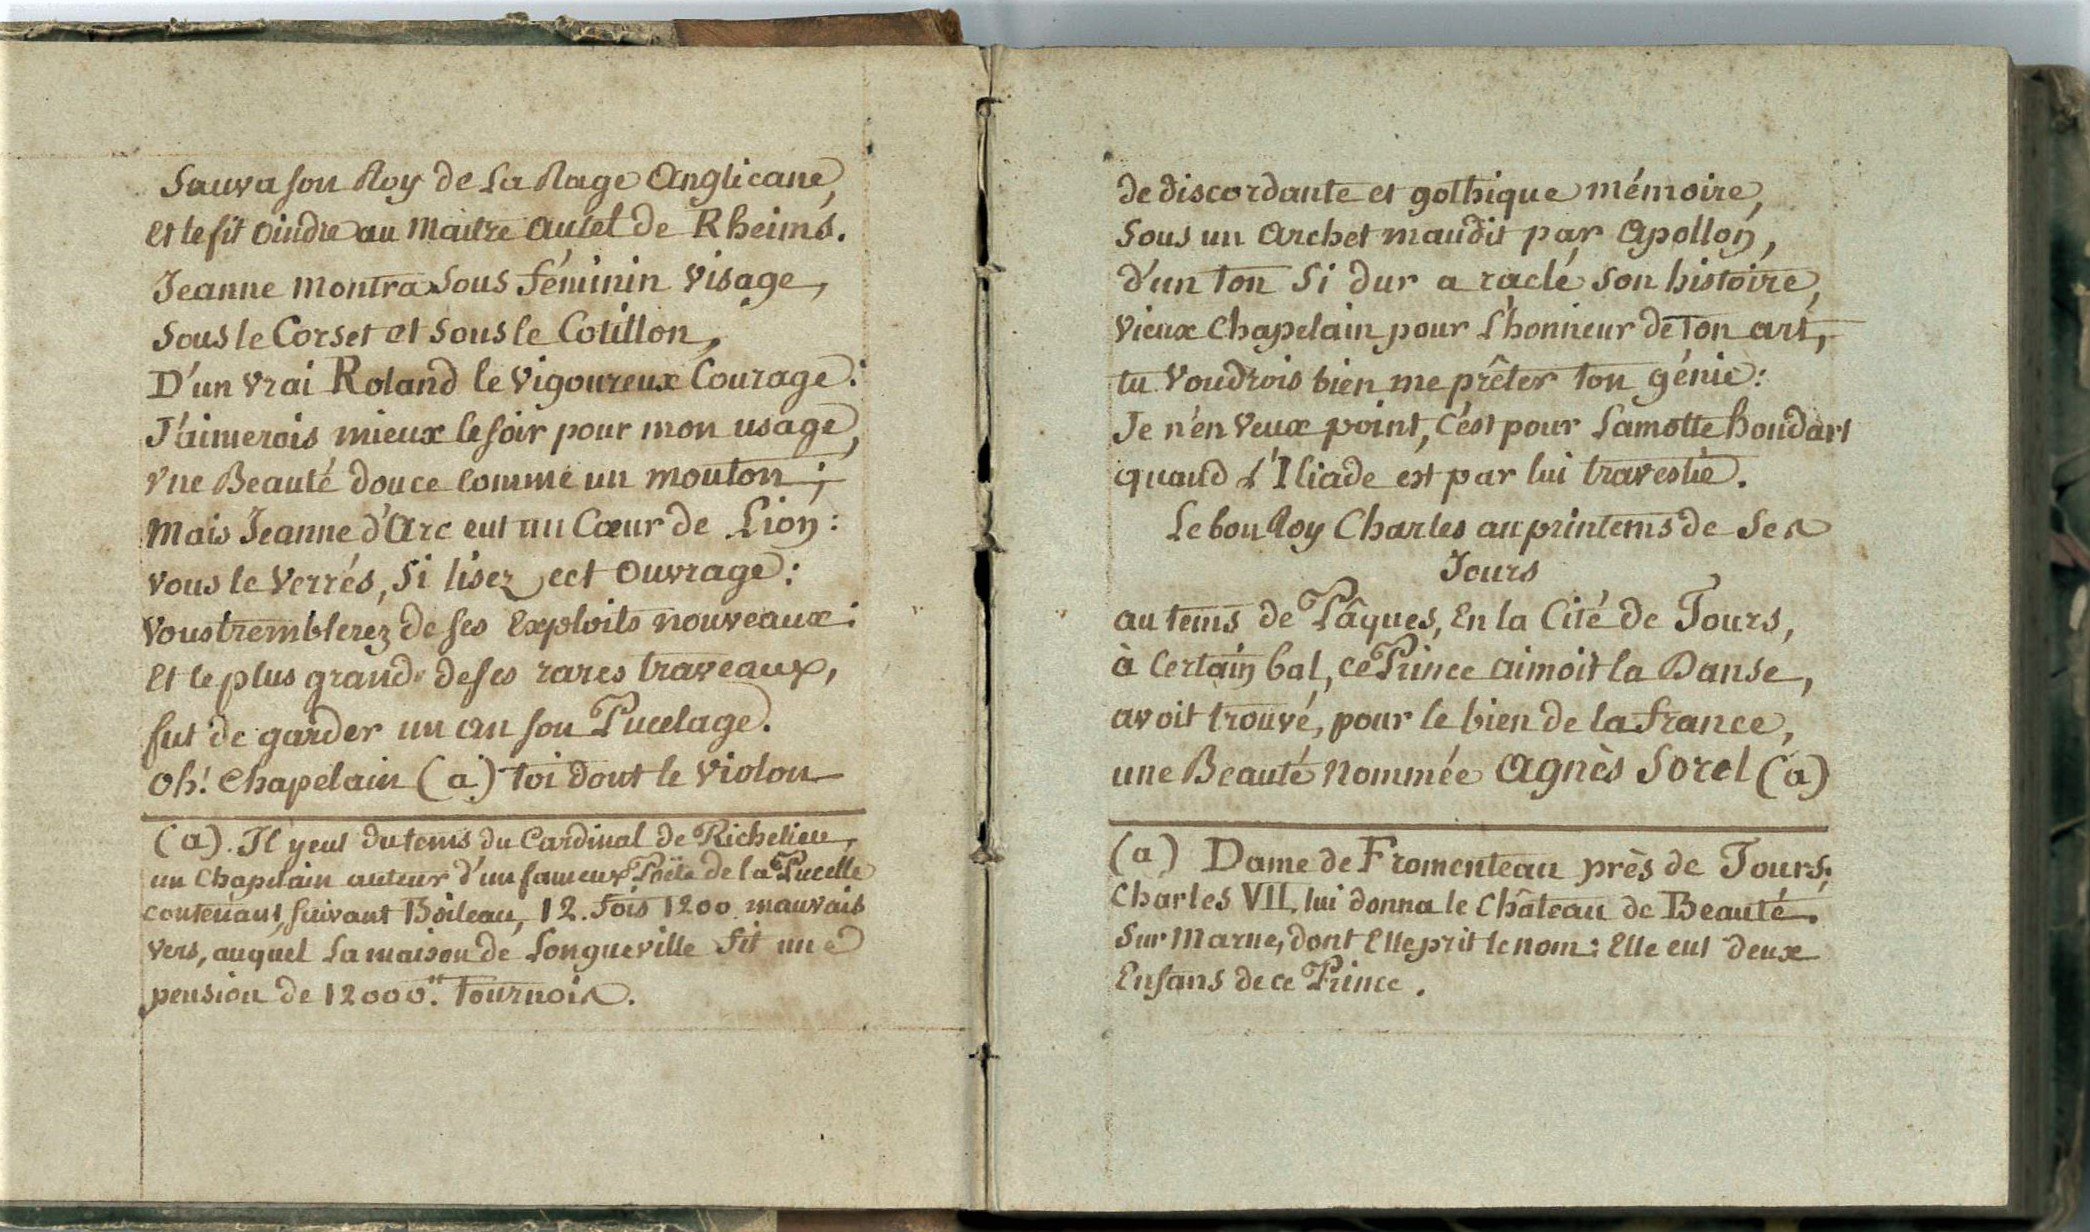 Sauva son Roy de La Rage Anglicane,
Et le fit Oindre au Maitre Autel de Rheims.
Jeanne montra Sous féminin Visage,
Sous le Corset et Sous le Cotillon,
D'un vrai Roland le Vigoureux Courage:
J'aimerois mieux le soir pour mon usage,
Vne Beauté douce comme un mouton;
Mais Jeanne d'Arc eut un Cœur de Lion:
Vous le Verrés, Si lisez cet Ouvrage:
Vous tremblerez de ses Exploits nouveaux:
Et le plus grand de ses rares traveaux,
fut de garder un an son Pucelage.
Oh! Chapelain (a) toi dont le Violon
(a). Il y eut du tems du Cardinal de Richelieu,
un Chapelain auteur d'un fameux Poëte de la Pucelle
contenant, suivant Boileau, 12. fois 1200 mauvais
vers, auquel La maison de Longueville fit une
pension de 12000tt. Tournois.
de discordante et gothique mémoire,
Sous un Archet maudit par Apollon,
d'un ton Si dur a raclé Son histoire,
Vieux Chapelain pour L'honneur de Ton art,
tu Voudrois bien me prêter ton génie:
Je n'en Veux point, C'est pour Lamotte houdart
quand L'Iliade est par lui travestie.
Le bon Roy Charles au printems de Ses
Jours
au tems de Pâques, En la Cité de Tours,
à Certain bal, ce Prince aimoit la Danse,
avoit trouvé, pour le bien de la france,
une Beauté Nommée Agnès Sorel (a)
(a) Dame de Fromenteau près de Tours;
Charles VII. lui donna le Château de Beauté
Sur Marne, dont Elle prit le nom: Elle eut deux
Enfans de ce Prince.